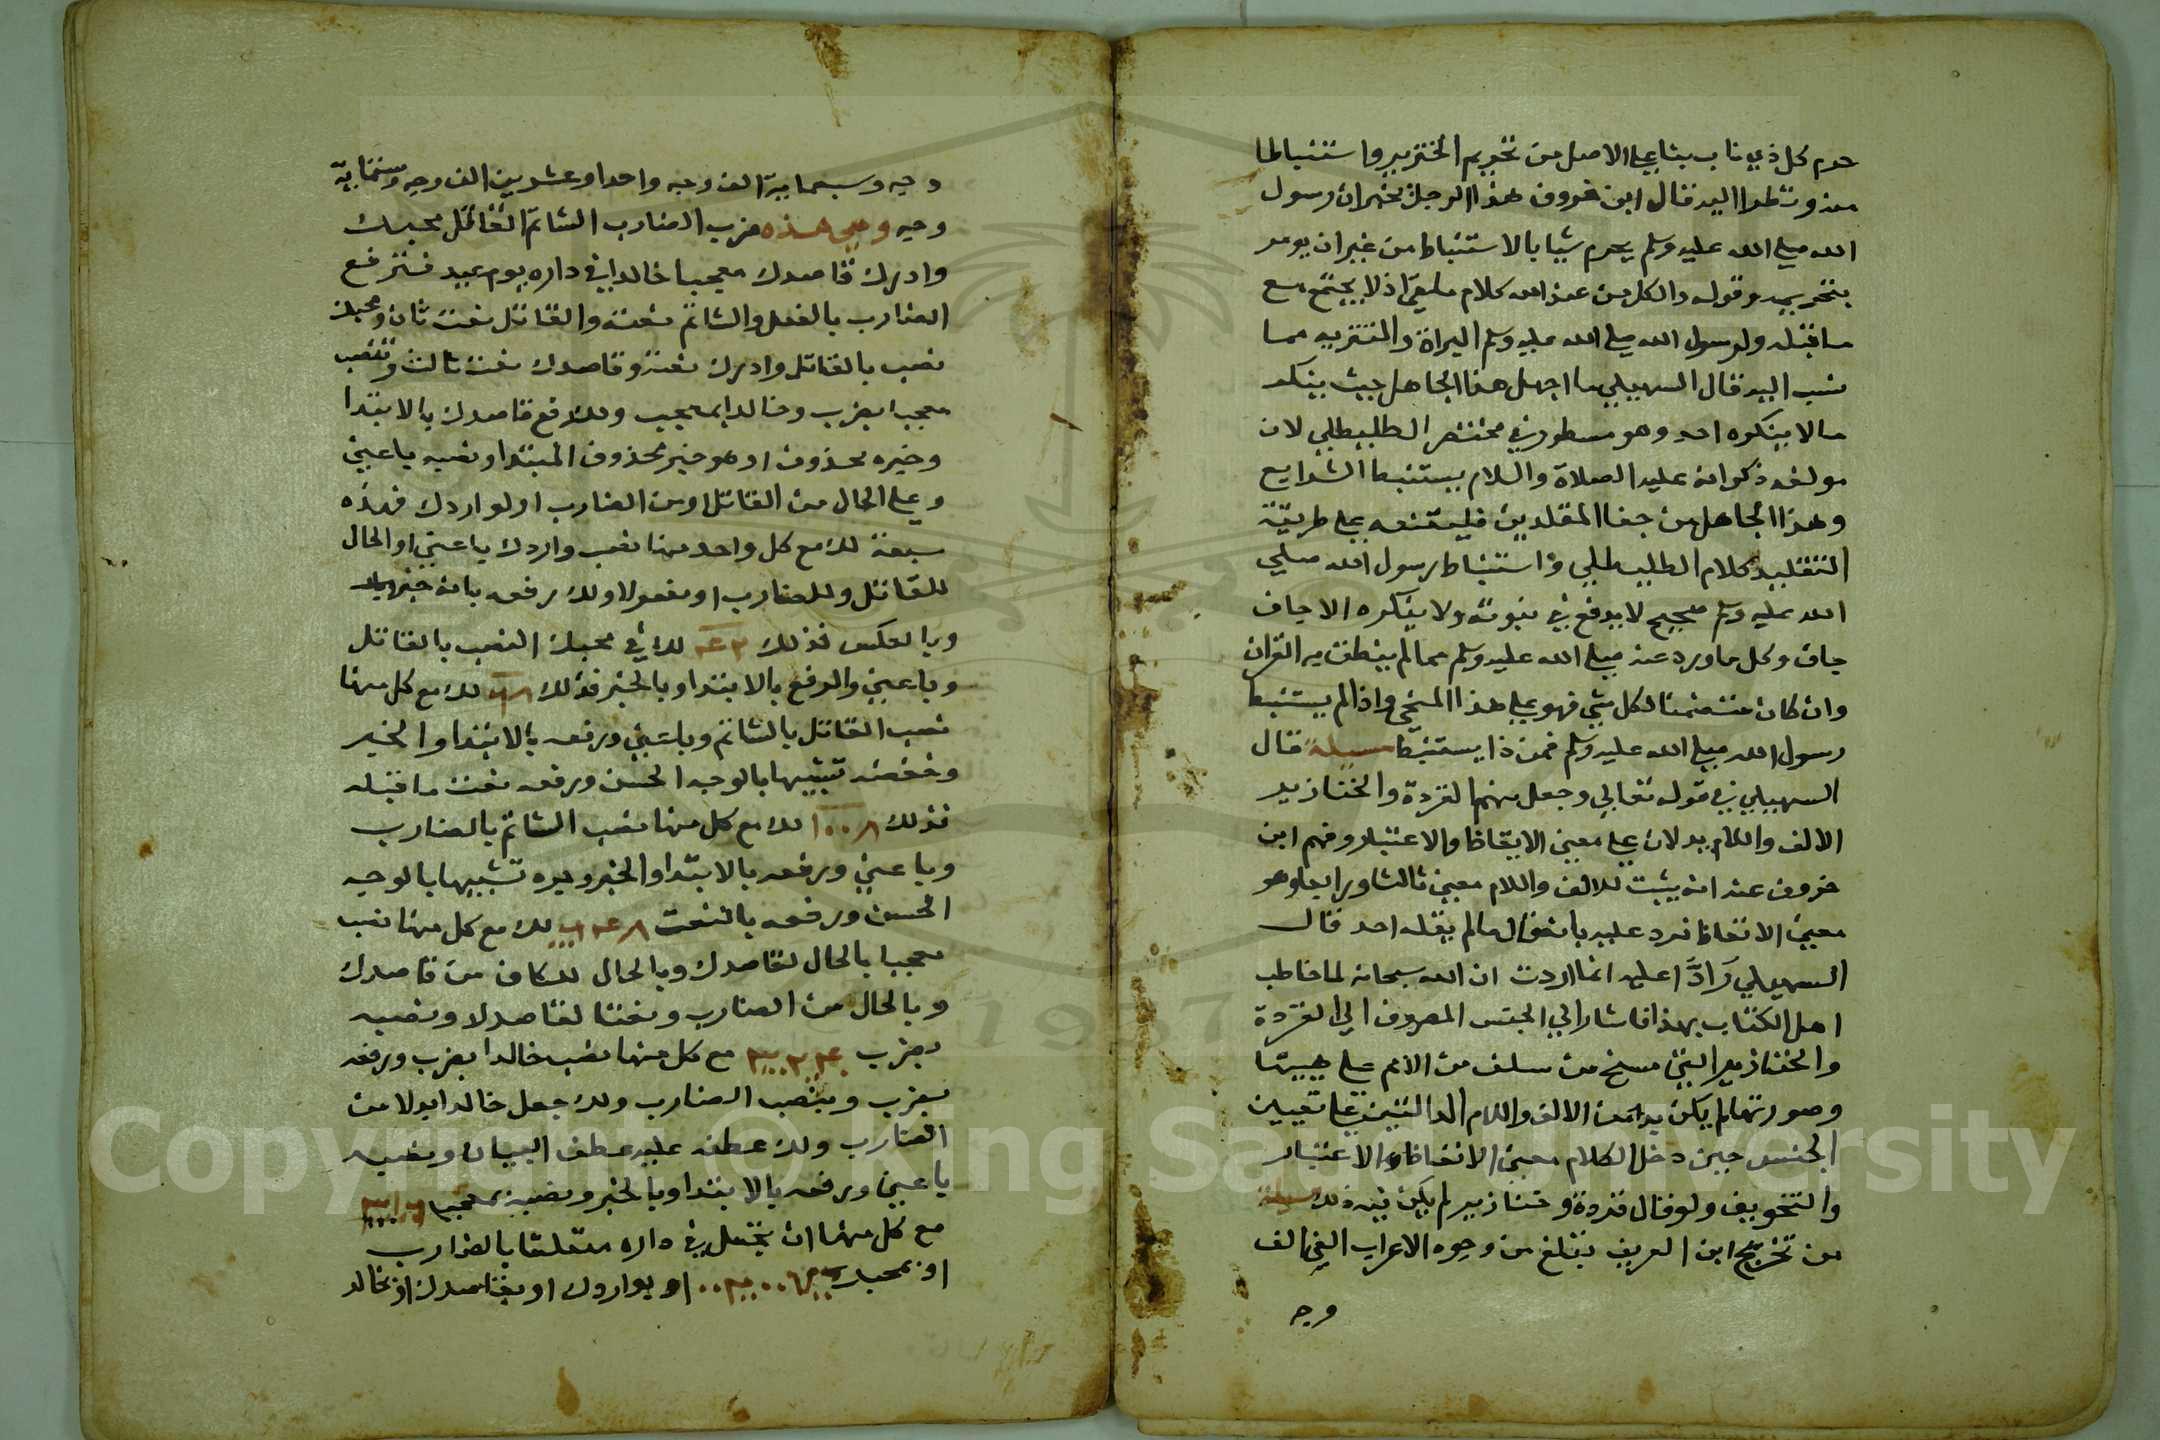 حرم كل ذي ناب بناء علي الاصل من تحريم الخنزير واستنباطا
منه ونظرا اليه فقال ابن خروف هذا الرجل يخبر ان رسول
الله صلي الله عليه وسلم يحرم شيا بالاستنباط من غير ان يومر
بتحريمه وقوله والكل من عند الله كلام ملغي اذ لا يجتمع مع
ما قبله ولرسول الله صلي الله عليه وسلم البراة والتنزيه مما
نسب اليه قال السهيلي ما اجهل هذا الجاهل حيث ينكر
مالا ينكره احد وهو مسطور في مختصر الطليطلي لان
مولفه ذكر انه عليه الصلاة والسلام يستنبط الشرايع
وهذا الجاهل من جفا المقلدين فليقنعه علي طريقة
التقليد كلام الطليطلي واستنباط رسول الله صلي
الله عليه وسلم صحيح لا يدفع في نبوته ولا ينكره الا جاف
جاف وكل ما ورد عنه صلي الله عليه وسلم مما لم ينطق به القران
وان كان متضمنا لكل شي فهو علي هذا المنحي واذا لم يستنبط
رسول الله صلي الله عليه وسلم فمن ذا يستنبط مسيلة قال
السهيلي في قوله تعالي وجعل منهم القردة والخنازير
الالف واللام يدلان علي معني الايقاظ والاعتبار وفهم ابن
خروف عنه انه يثبت للالف واللام معني ثالثا ورابعا وهو
معني الاتعاظ فرد عليه بانه قال مالم يقله احد قال
السهيلي رَادًّا عليه انما اردت ان الله سبحانه لما خاطب
اهل الكتاب بهذا فاشار الي الجنس المعروف الي القردة
والخنازير التي مسخ من سلف من الامم علي هييتها
وصورتها لم يكن بد من الالف واللام الدالتين علي تعيين
الجنس حين دخل الكلام معني الاتعاظ والاعتبار
والتخويف ولو قال قردة وخنازير لم يكن فيه ذلك مسيلة
من تخريج ابن العريف تبلغ من وجوه الاعراب الفي الف
وجه
وجه وسبعماية الف وجه واحدا وعشرين الف وجه وستماية
وجه وهي هذه ضرب الضارب الشاتم القاتل محبك
وادرك قاصدك معجبا خالدا في داره يوم عيد فترفع
الضارب بالفعل والشاتم نعته والقاتل نعت ثان ومحبك
نصب بالقاتل وادرك نعته وقاصدك نعت ثالث وتنصب
معجبا بضرب وخالدا بمعجب ولك رفع قاصدك بالابتدا
وخبره محذوف او هو خبر محذوف المبتدا ونصبه باعني
وعلي الحال من القاتل او من الضارب او لو اردك فهذه
سبعة لك مع كل واحد منها نصب واردك باعني او الحال
للقاتل وللضارب او مفعولا ولك رفعه بانه خبر
وبالعكس فذلك ٤٢ لك في محبك النصب بالقاتل
وباعني والرفع بالابتدا وبالخبر فذلك لك مع كل منها
نصب القاتل بالشاتم وباعني ورفعه بالابتدا والخبر
وخفضه تشبيها بالوجه الحسن ورفعه نعت ما قبله
فذلك ١٠٠٨ لك مع كل منها نصب الشاتم بالضارب
وباعني ورفعه بالابتدا والخبر وجره تشبيها بالوجه
الحسن ورفعه بالنعت لك مع كل منها نصب
معجبا بالحال لقاصدك وبالحال للكاف من قاصدك
وبالحال من الضارب ونعتا لقاصدك ونصبه
بضرب مع كل منها نصب خالدا بضرب ورفعه
بضرب وبنصب الضارب ولك جعل خالدا بدلا من
الضارب ولك عطفه عليه عطف البيان ونصبه
باعني ورفعه بالابتدا وبالخبر ونصبه بمعجب
مع كل منها ان تجعل في داره متعلقا بالضارب
او بمحبك او بواردك او بقاصدك او بخالد
Copyright © King Saud University
1957